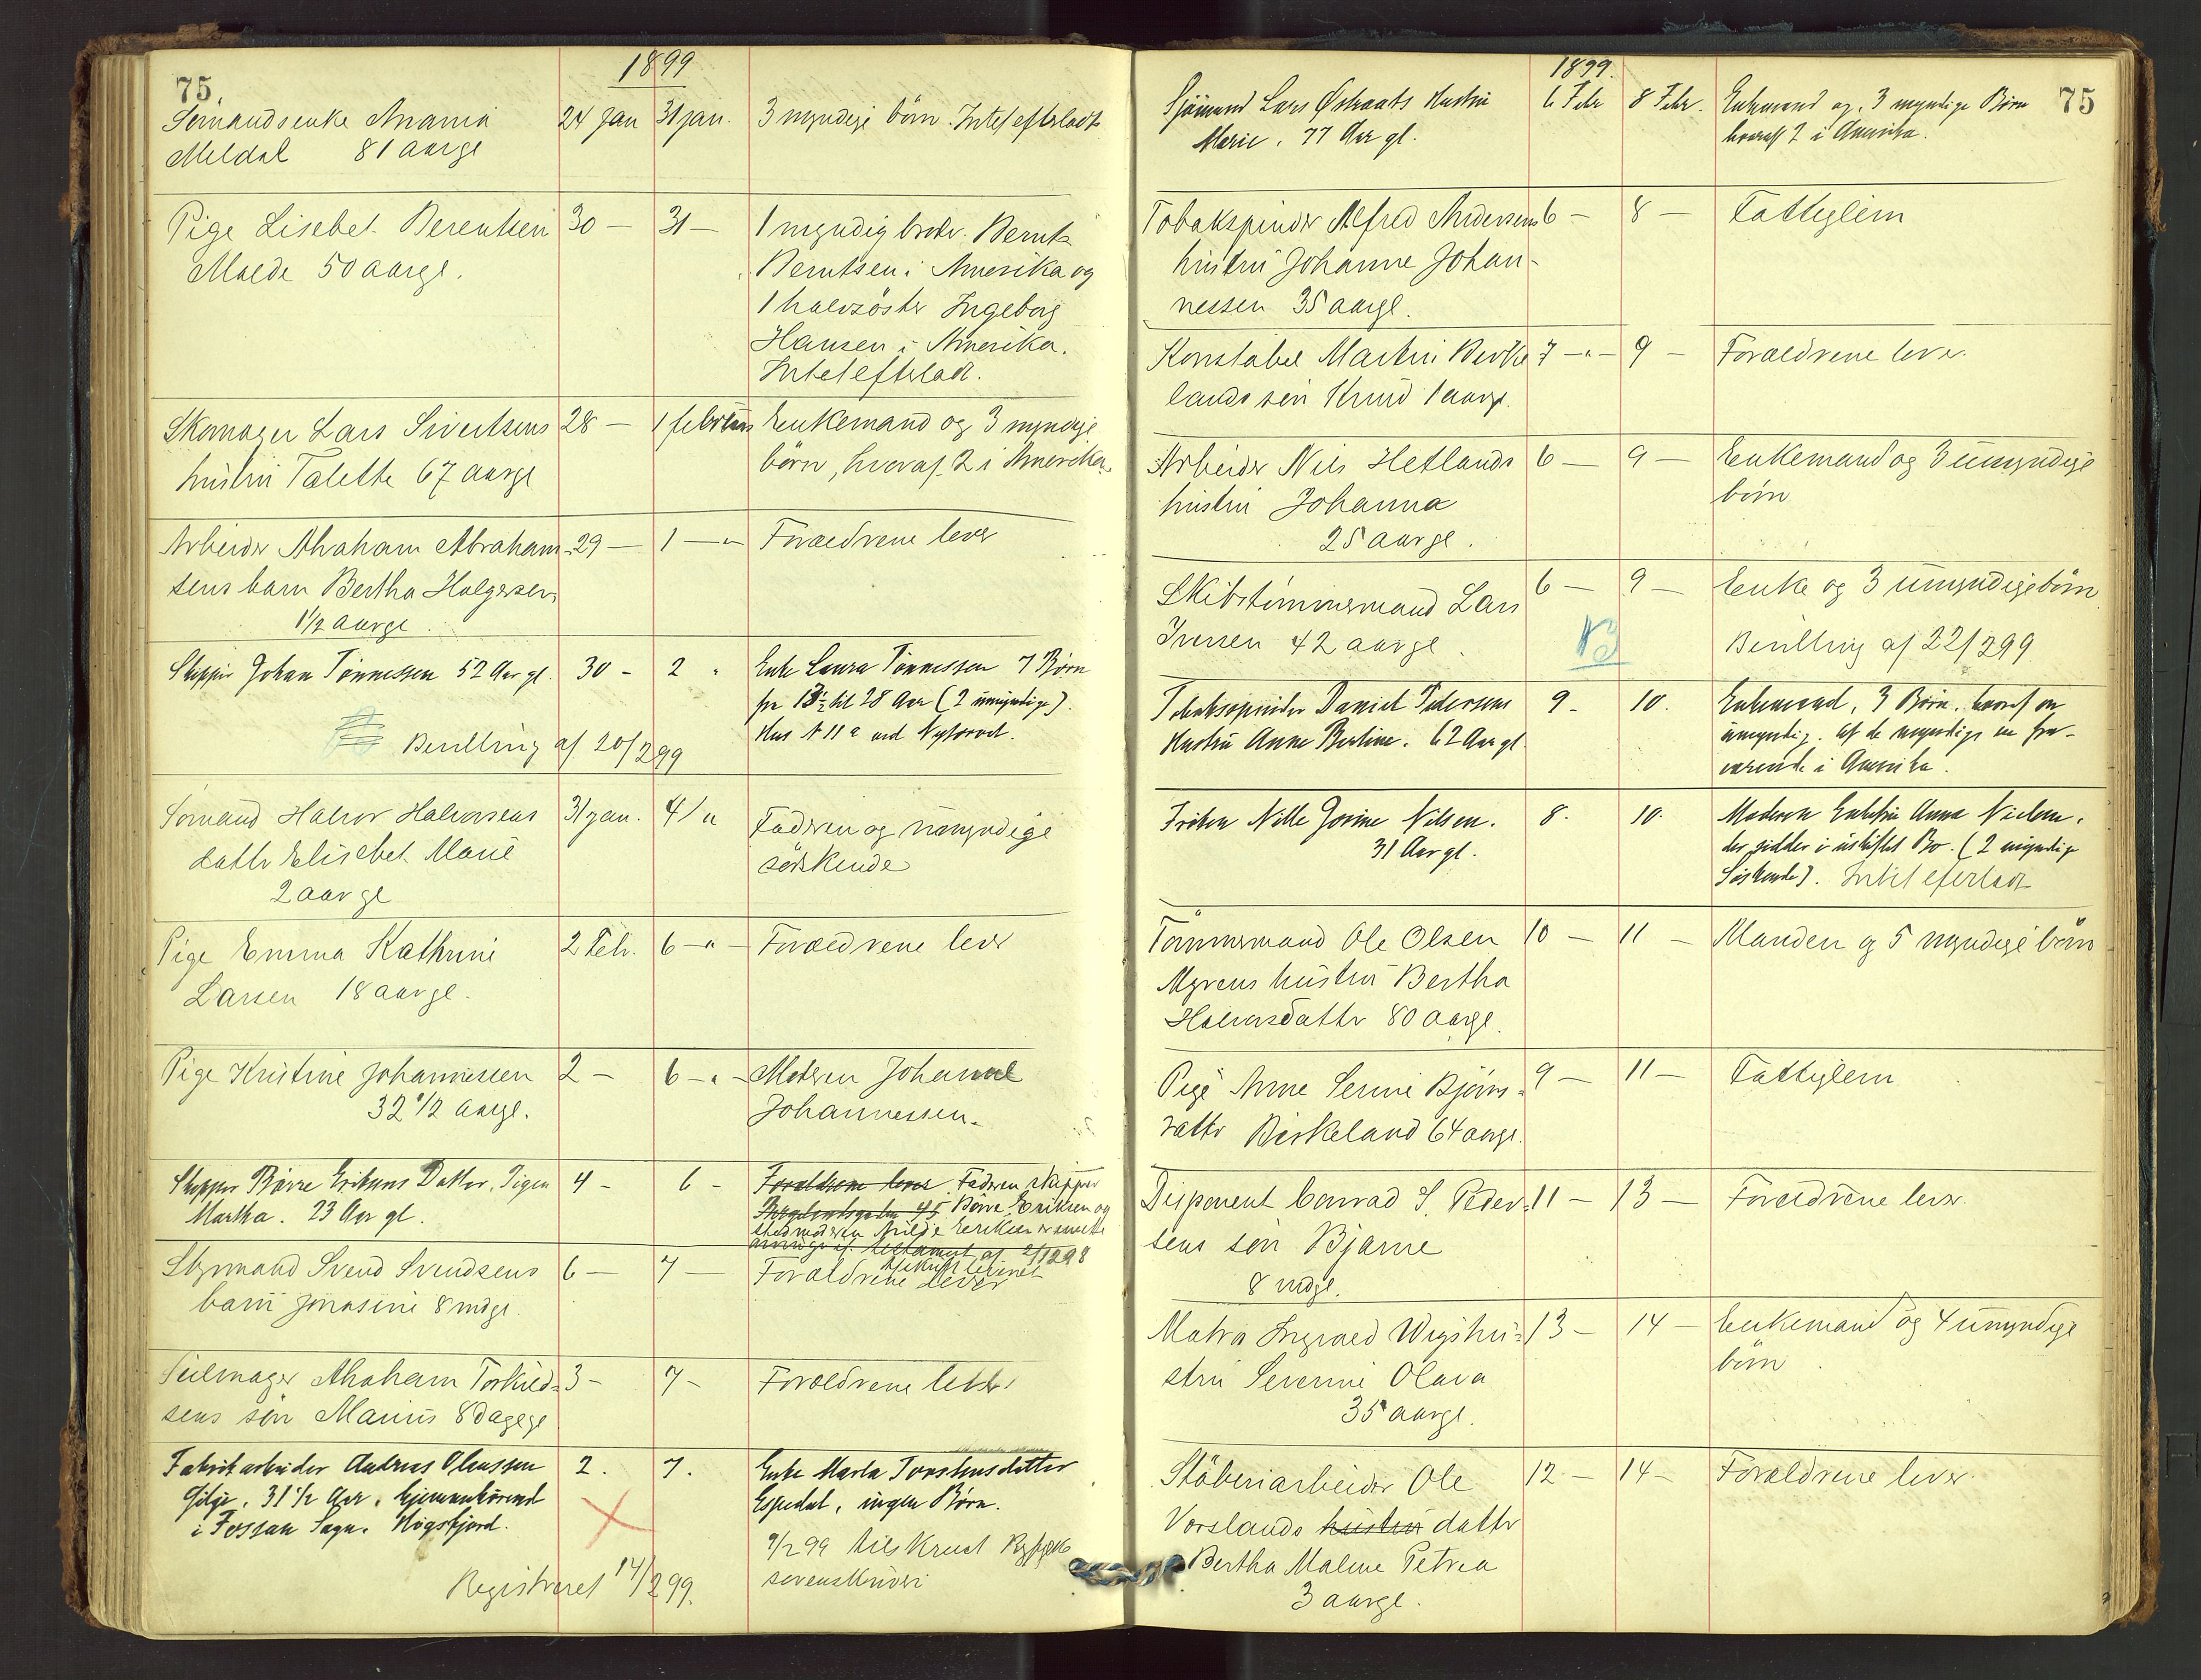 75
1899
Sömandsenke Anania 24 Jan 31 jan. 3 myndige börn. Intet efterladt
Meldal 81 aargl
Pige Lisebet Berentsen 30 — 31 — 1 myndig broder Bernt
Malde 50 aargl. Berntsen i Amerika og
1 halvsöster Ingeborg
Hansen i Amerika.
Intet efterladt.
Skomager Lars Sivertsens 28 — 1 februar Enkemand og 3 myndige
hustru Talette 67 aargl börn, hvoraf 2 i Amerika.
Arbeider Abraham Abraham- 29 — 1 —"— Forældrene lever
sens barn Bertha Holgersen
1 1/2 aargl.
Skipper Johan Tönnessen 52 Aar gl. 30 - 2 " Enke Laura Tönnessen 7 Börn
fra 13 1/2 til 28 Aar (2 umyndige).
Hus N 11 a ved Nytorvet.
Bevilling af 20/2 99
Sömand Halvor Halvorsens 31 jan. 4 /" Faderen og umyndige
datter Elisebet Marie söskende
2 aargl
Pige Emma Kathrine 2 Feb. 6 —"— Forældrene lever
Larsen 18 aargl.
Pige Kristine Johannessen 2 — 6 —"— Moderen Johanne
32 1/2 aargl. Johannessen.
Skipper Börre Eriksens Datter, Pigen 4 - 6 - Forældrene lever. Faderen skipper
Martha. 23 Aar gl. Börre Eriksen og
stedmoderen
af 2/12 98
Styrmand Svend Svendsens 6 — 7 — Forældrene lever
barn Jonasine 8 mdgl.
Seilmager Abraham Torkild- 3 - 7 - Forældrene lever
sens sön Marius 8 dagegl
Fabrikarbeider Andreas Olaussen 2. 7. Enke Marta Torstensdatter
Gilje, 31 1/2 Aar, hjemmehörend Espedal, ingen Börn.
i Fossan Sogn. Högsfjord.
9/2 99 tilskrevet Ryfylke
sorenskriveri
Registreret 14/2 99.
75
1899.
Sjömand Lars Östraats Hustru 6 Febr 8 Febr. Enkemand og 3 myndige Börn
Marie, 77 Aar gl. hvoraf 2 i Amerika.
Tobakspinder Alfred Andersens 6 — 8 — Fattiglem
hustru Johanne Johan-
nessen 35 aargl.
Konstabel Martin Birke- 7 —"— 9 — Forældrene lever.
lands sön Knud 1 aargl.
Arbeider Nils Hetlands 6 — 9 — Enkemand og 3 umyndige
hustru Johanna börn
25 aargl.
Skibstömmermand Lars 6 — 9 — Enke og 3 umyndige börn
Iversen 42 aargl. NB Bevilling af 22/2 99
Tobakspinder Daniel Pedersens 9. 10. Enkemand, 3 Börn, hvoraf en
Hustru Anne Bertine. 62 Aar gl umyndig. Af de myndige en fra-
værende i Amerika.
Fröken Nille Gorine Nilsen. 8. 10. Moderen Enkefru Anna Nielsen,
31 Aar gl. der sidder i uskiftet Bo. (2 myndige
Söskende). Intet efterladt
Tömmermand Ole Olsen 10 — 11 — Manden og 5 myndige börn
Myrens hustru Bertha
Halvorsdatter 80 aargl.
Pige Anne Serine Bjöns- 9 — 11 — Fattiglem
datter Birkeland 64 aargl.
Disponent Conrad S. Peder- 11 — 13 — Forældrene lever.
sens sön Bjarne
8 mdgl.
Matros Ingvald Wigs hu- 13 — 14 — Enkemand og 4 umyndige
stru Severine Olava börn.
35 aargl.
Stöberiarbeider Ole 12 — 14 — Forældrene lever.
Vorslands hustru datter
Bertha Maline Petrea
3 aargl.